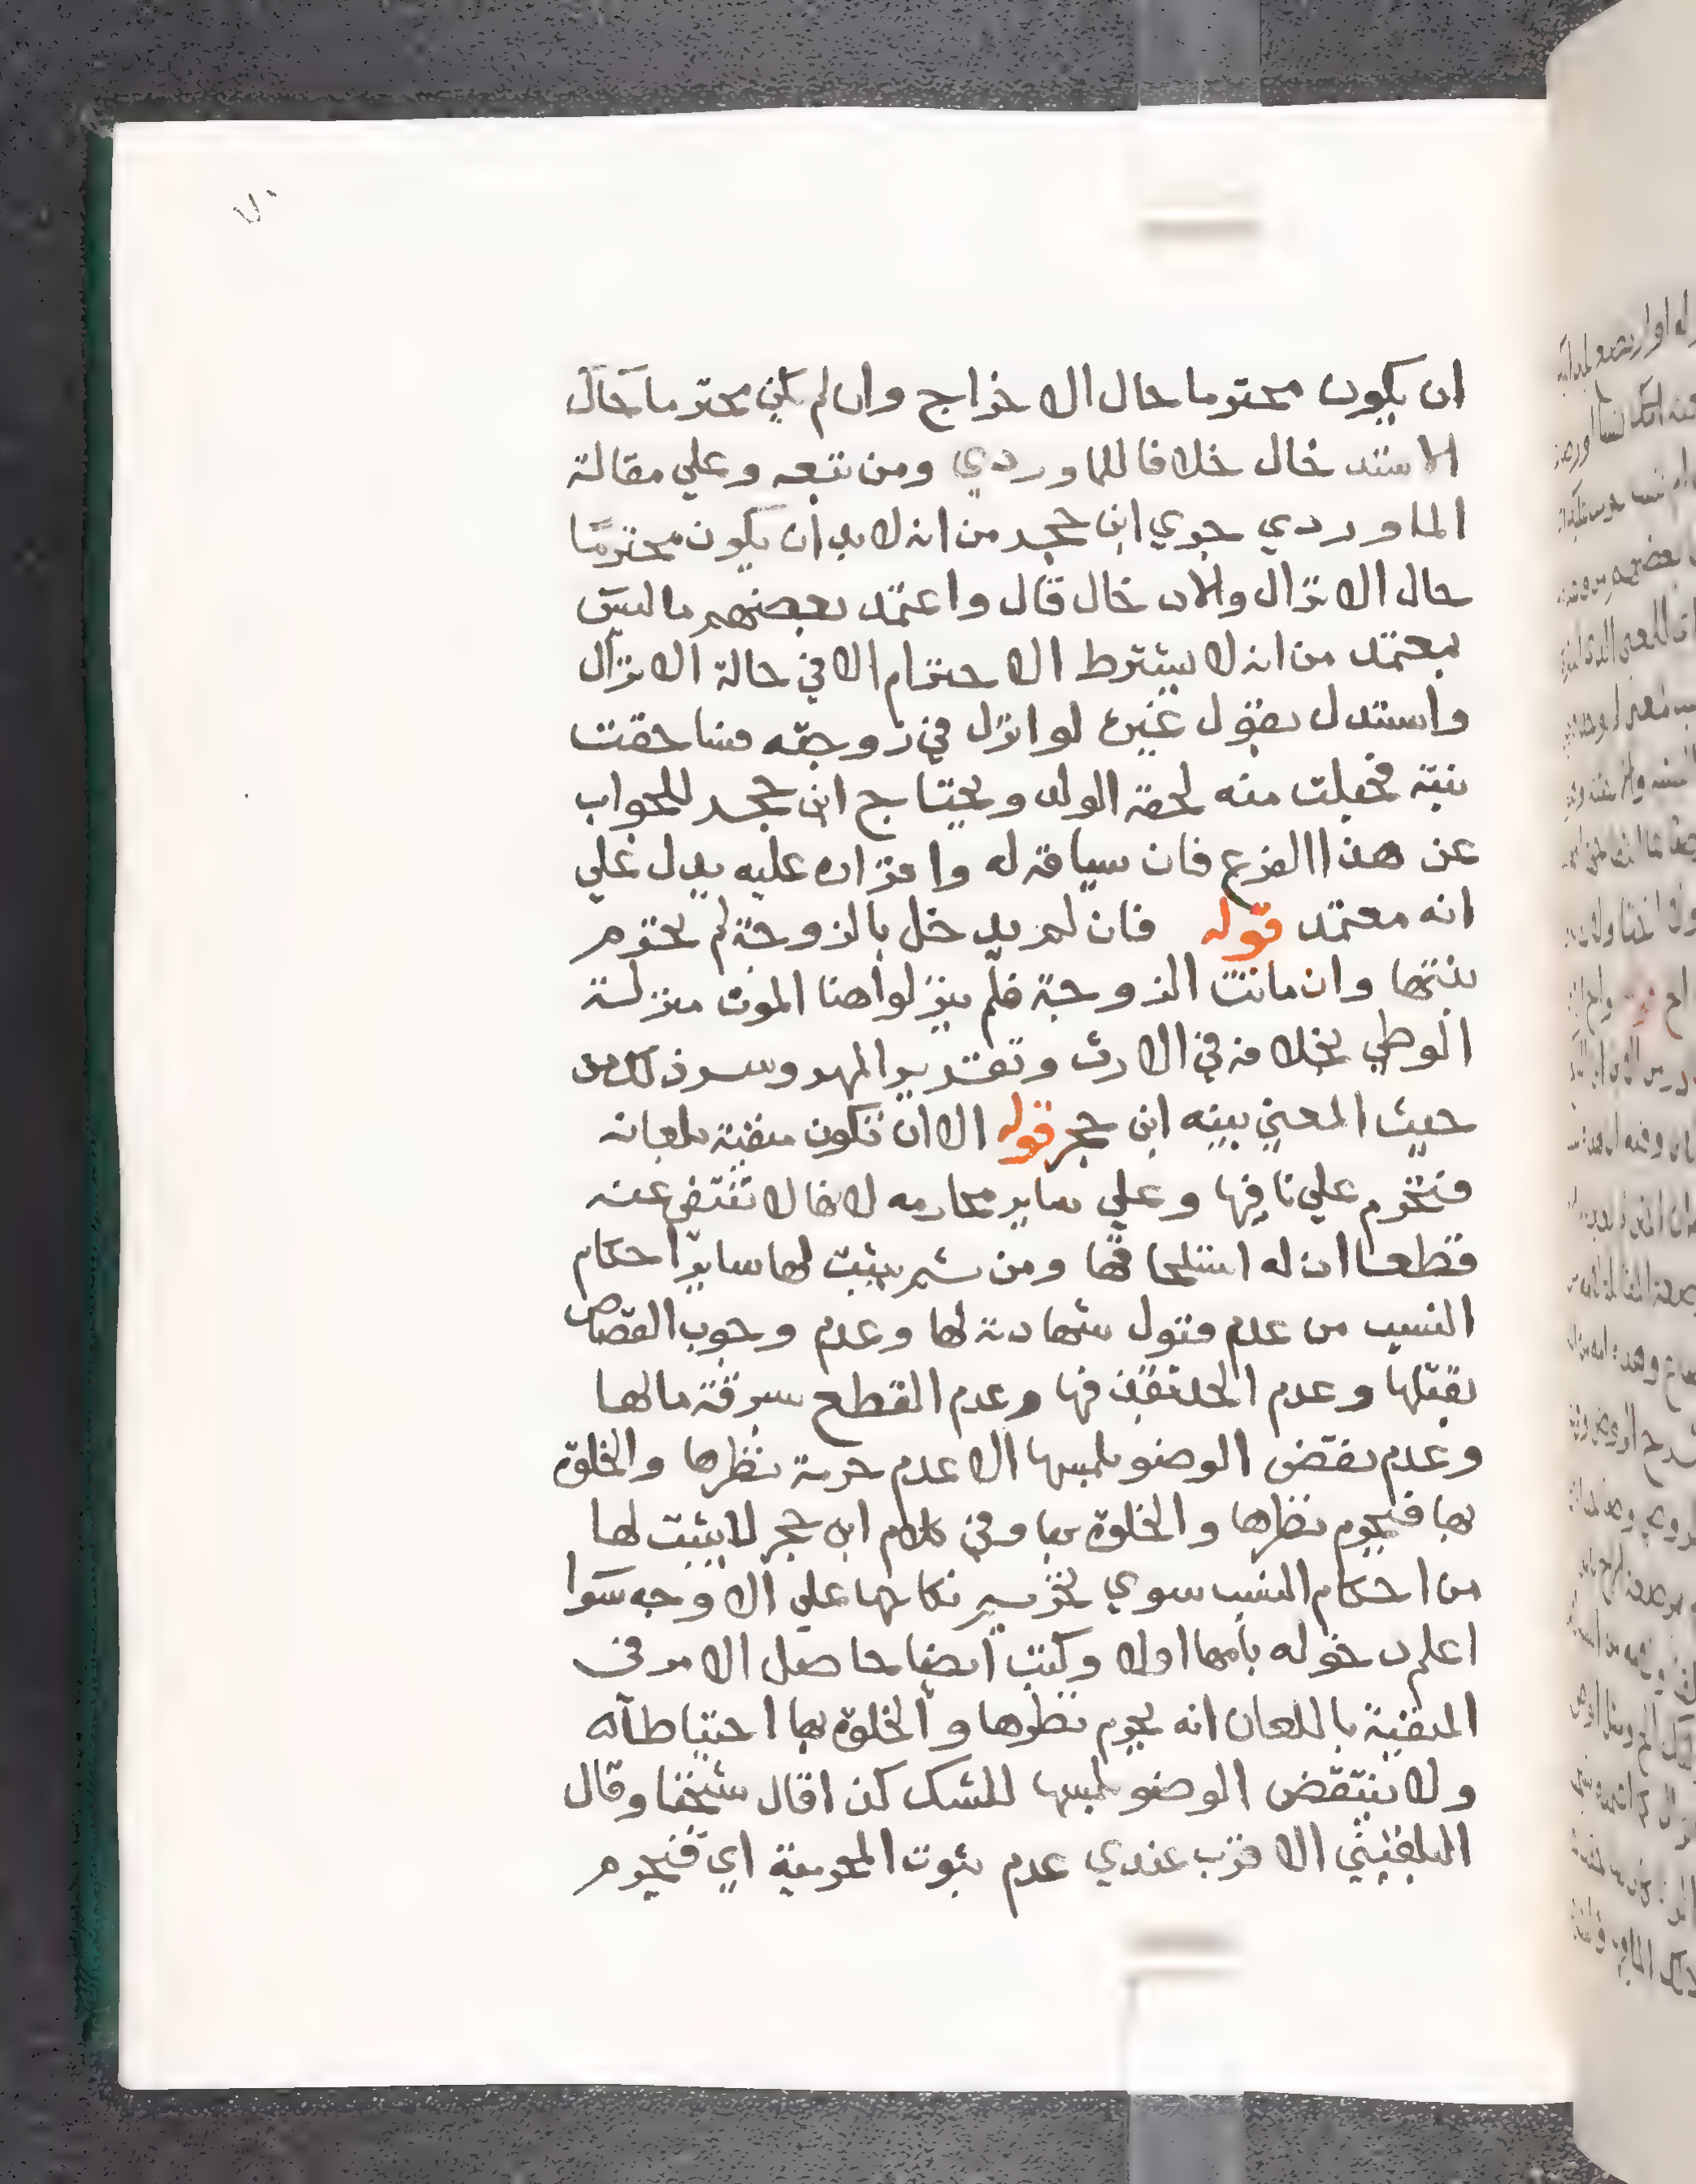 ٧٠
ان يكون محترما حال الاخراج وان لم يكن محترما حال
الاستدخال خلافا للماوردي ومن تبعه وعلي مقالة
الماوردي جري ابن حجر من انه لا بد ان يكون محترمًا
حال الانزال والادخال قال واعتمد بعضهم ما ليس
بمعتمد من انه لا يشترط الاحترام الا في حالة الانزال
واستدل بقول غيره لو انزل في زوجته فساحقت
بنته فحبلت منه لحقه الولد ويحتاج ابن حجر للجواب
عن هذا الفرع فان سياقه له واقراره عليه يدل علي
انه معتمد قوله فان لم يدخل بالزوجة لم يحترم
بنتها وان ماتت الزوجة فلم ينزلوا هنا الموت منزلة
الوطي بخلافه في الارث وتقدير المهر وسر ذلك من
حيث المعني بينه ابن حجر قوله الا ان تكون منفية بلعانه
فتحرم علي نافيها وعلي ساير محارمه لانها لا تنتفي عنه
قطعا ان له استلحاقها ومن ثم يثبت لها ساير احكام
النسب من عدم قبول شهادته لها وعدم وجوب القصاص
بقتلها وعدم الحد بقذفها وعدم القطع بسرقة مالها
وعدم نقض الوضو بلمسها الا عدم حرمة نظرها والخلوة
بها فيحرم نظرها والخلوة بها وفي كلام ابن حجر لا يثبت لها
من احكام النسب سوي تحريم نكاحها علي الاوجه سوا
اعلم دخوله بامها اولا وكتب ايضا حاصل الامر في
المنفية باللعان انه يحرم نظرها والخلوة بها احتياطا له
ولا ينتقض الوضو بلمسها للشك كذا قال شيخنا وقال
البلقيني الاقرب عندي عدم ثبوت المحرمية اي فيحرم